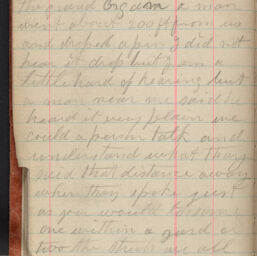 The grand Organ a man
went about 200 ft from us
and droped a pin I did not
hear it drop but I am a
little hard of hearing but
a man near me said he
heard it very plain we
could a person talk and
understand what they
said that distance away
when they spoke just
as you would to some
one within a yard or
two the streets are all